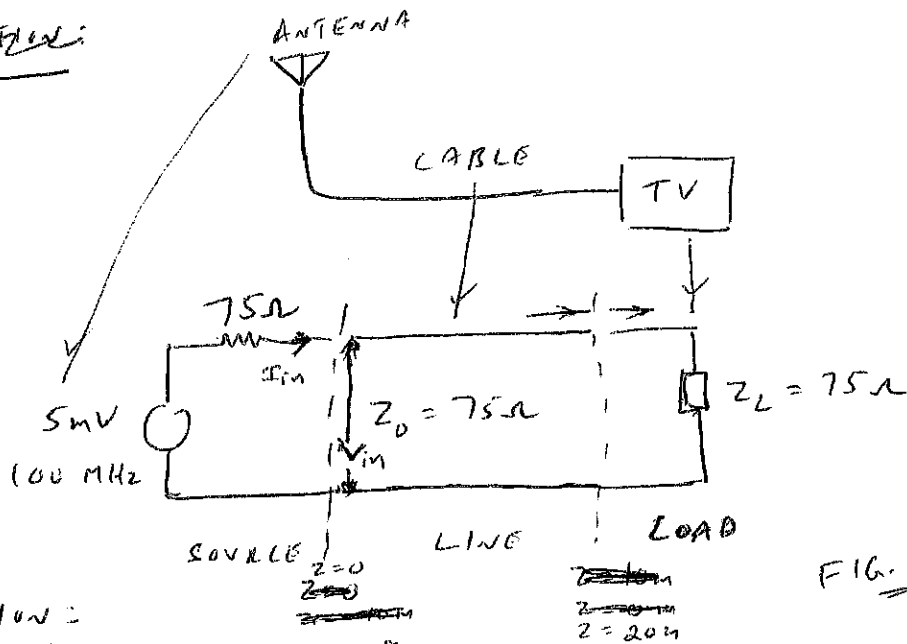 ANTENNA
CABLE
TV
75Ω
Iin
5mV
100 MHz
Z0 = 75Ω
Vin
ZL = 75Ω
SOURCE
LINE
LOAD
z=0
z = 20m
FIG.